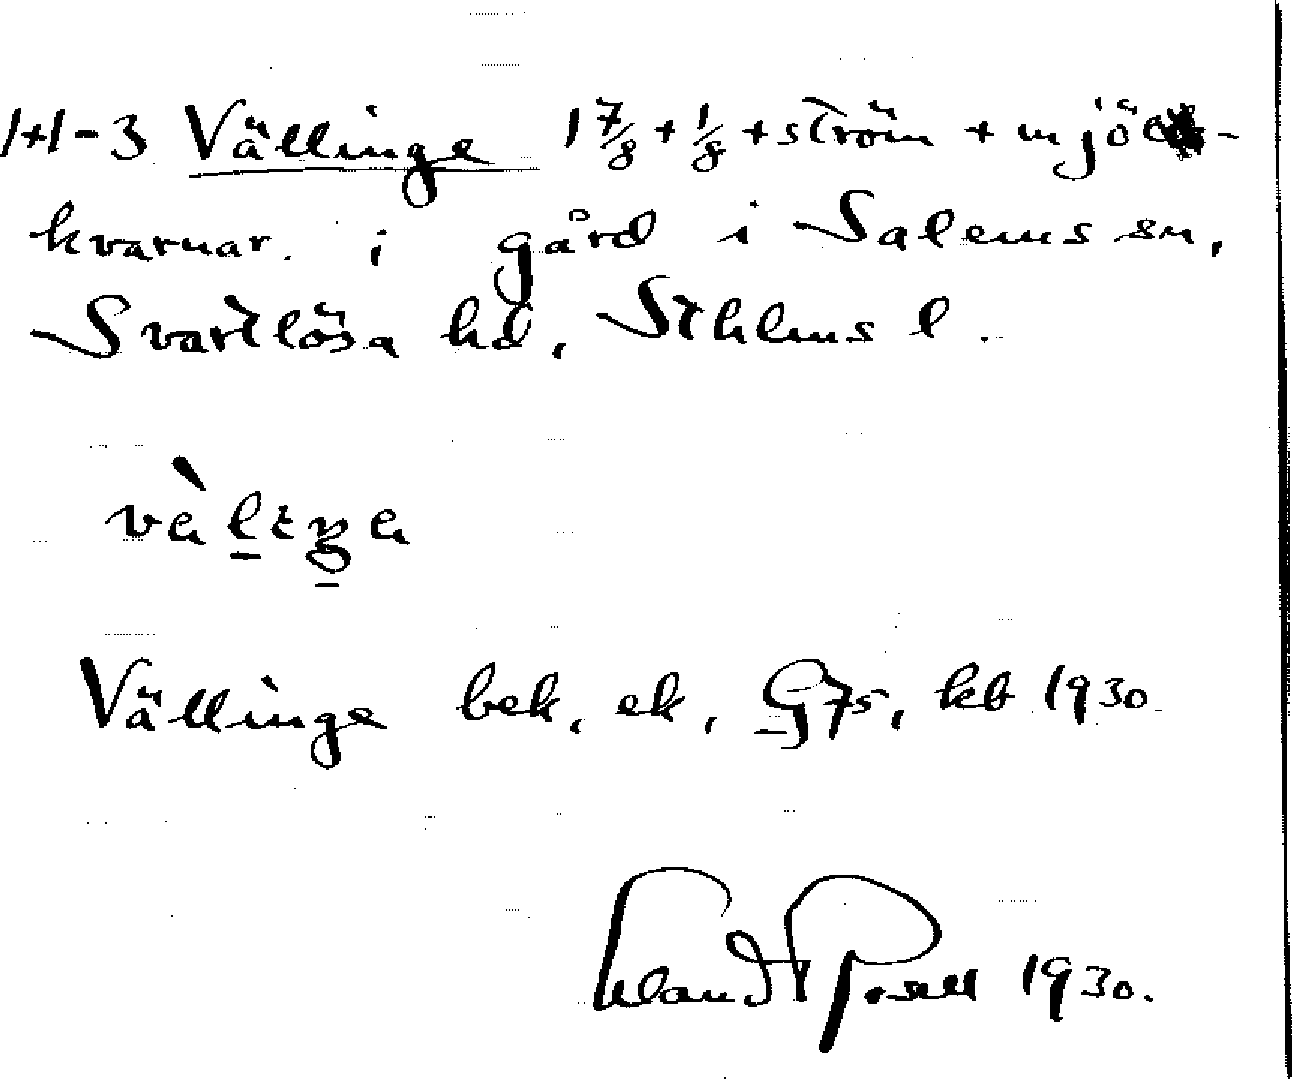 1+1-3 Vällinge 1 7/8 + 1/8 + ström + mjöl-
kvarnar. i gård i Salems sn,
Svartlösa hd, Sthlms l.
Vällinge bek, ek, GJs, kb 1930
Rosell 1930.